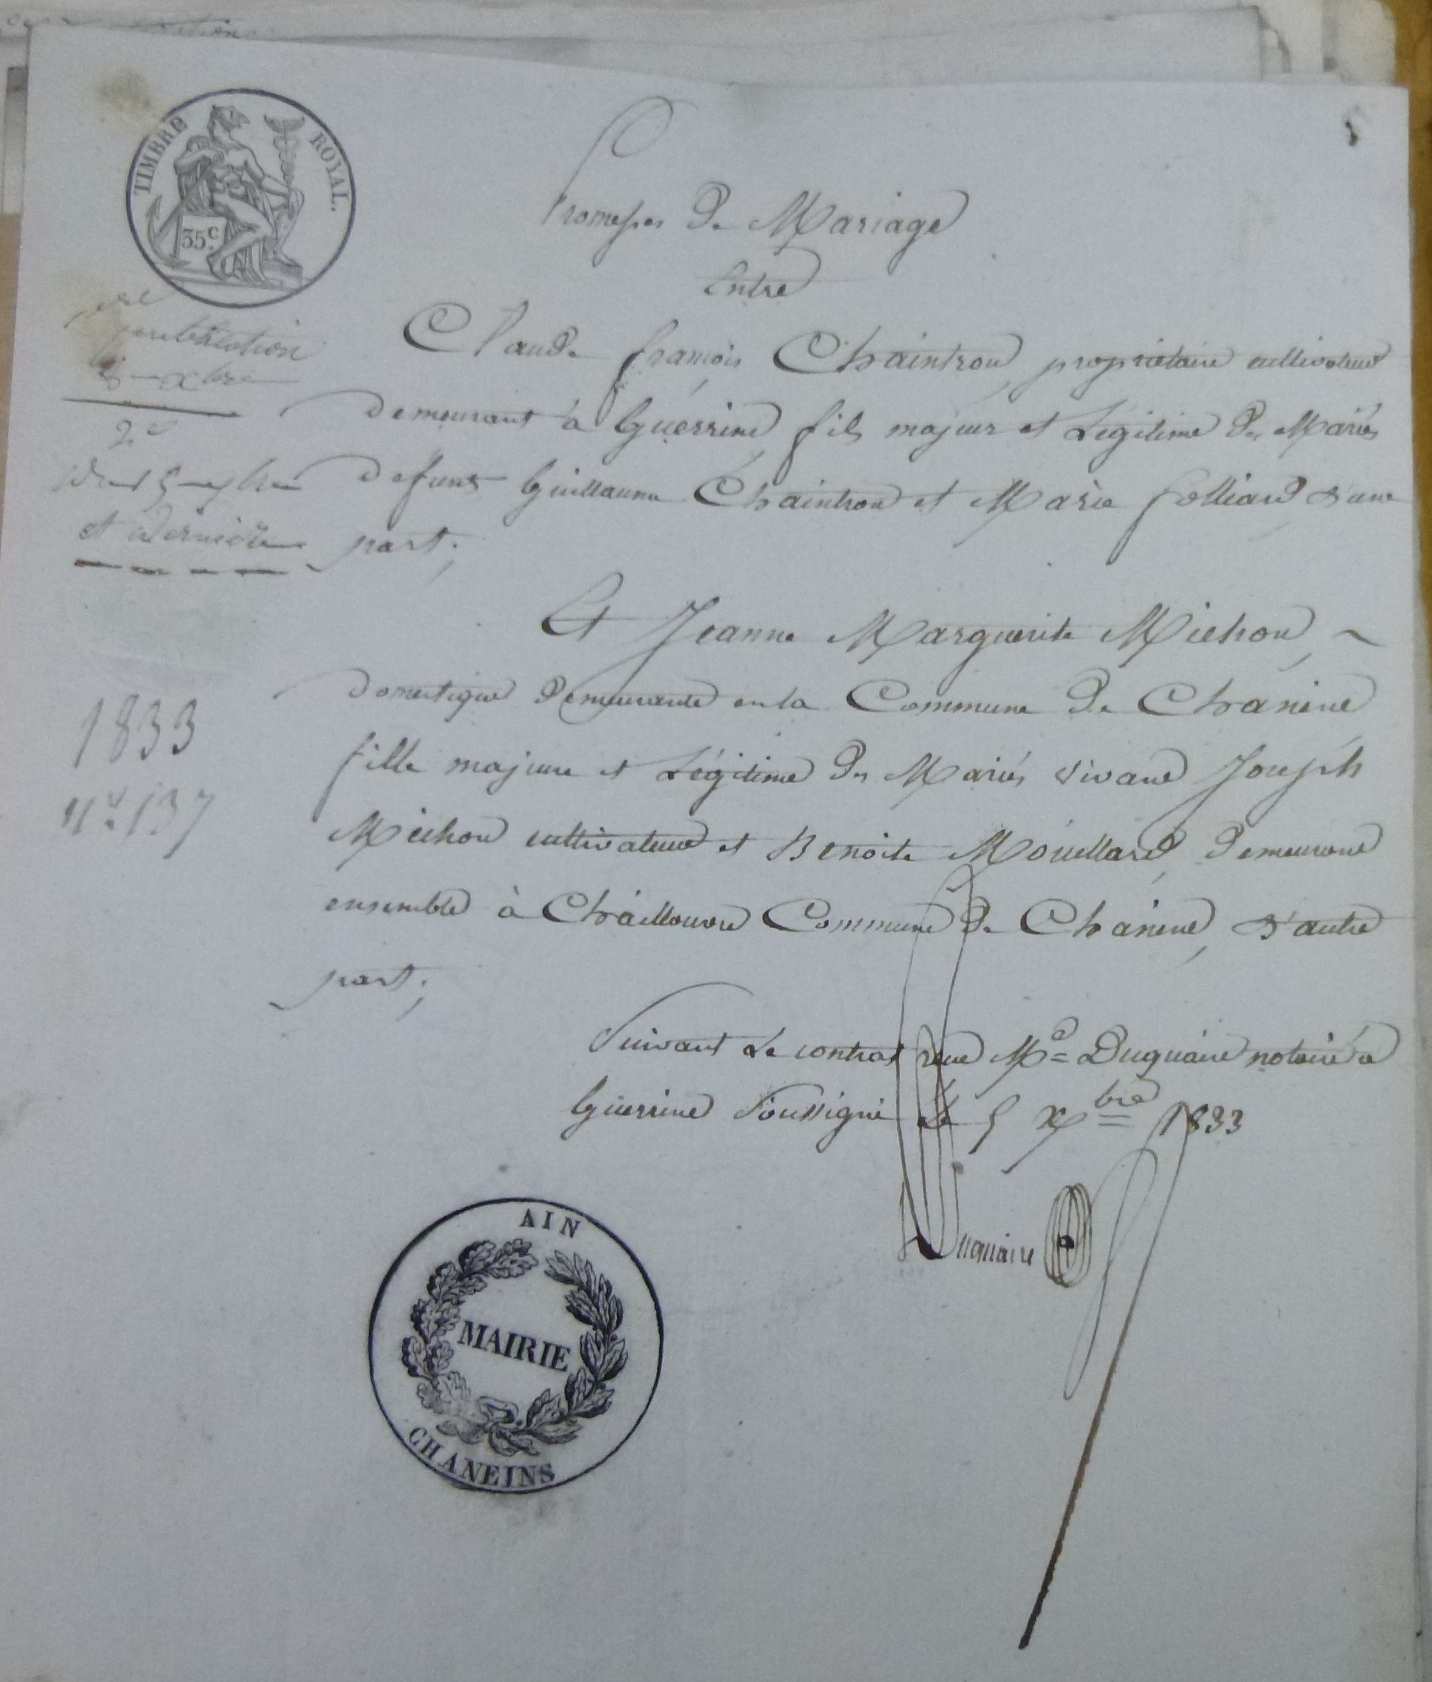 TIMBRE ROYAL.
35c.
Promesses De Mariage
Entre
Claude françois Chaintron, propriétaire cultivateur
demeurant à Guerrine, fils majeur et Légitime Des Mariés
defunt Guillaume Chaintron et Marie folliard d'une
part;
Et Jeanne Marguerite Michon,
domestique Demeurante en la Commune De Chaneine
fille majeure et Légitime Des Mariés vivant Joseph
Michon cultivateur et Benoite Mouillard, Demeurant
ensemble à Chaillouvre Commune De Chaneine, d'autre
part;
Suivant Le contrat reçu Me Duquaire notaire à
Guerrine Soussigné Le 5 Xbre 1833
Duquaire
publication
8 Xbre
2e
et Dernière
1833
n° 137
AIN
MAIRIE
CHANEINS